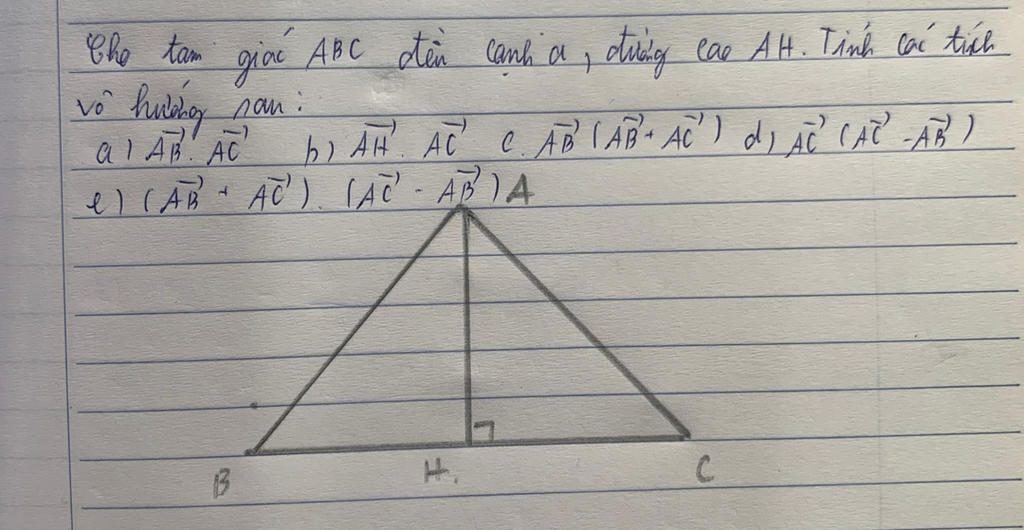 Cho tam giác ABC đều cạnh a, đường cao AH. Tính các tích
vô hướng sau:
a) AB⃗. AC⃗ b) AH⃗. AC⃗ c. AB⃗ (AB⃗ + AC⃗) d) AC⃗ (AC⃗ - AB⃗)
e) (AB⃗ + AC⃗). (AC⃗ - AB⃗) A
B H. C